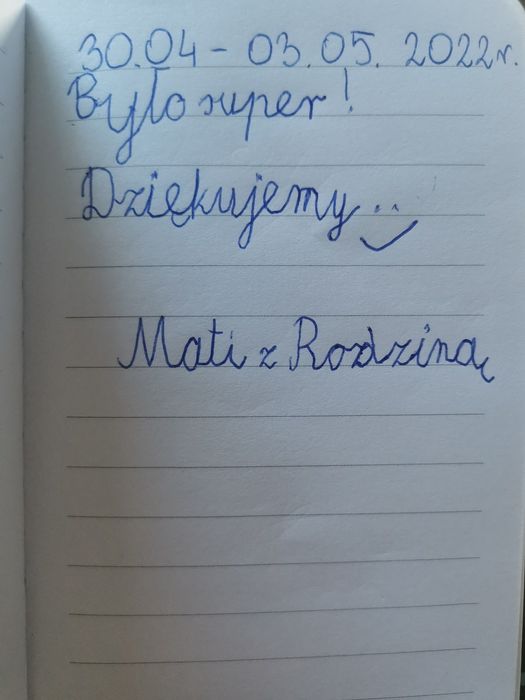 30.04 - 03.05. 2022r.
Było super!
Dziękujemy..
Mati z Rodziną